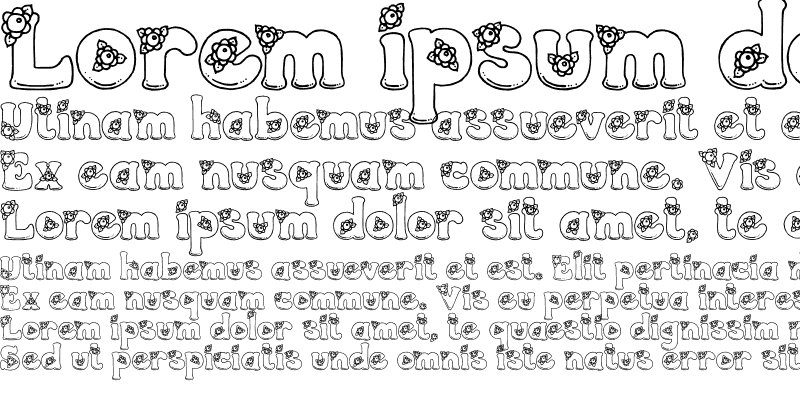 Lorem ipsum do
Utinam habemus assueverit et e
Ex eam nusquam commune. Vis e
Lorem ipsum dolor sit amet, te q
Utinam habemus assueverit et est. Elit pertinacia n
Ex eam nusquam commune. Vis eu perpetua interes
Lorem ipsum dolor sit amet, te quaestio dignissim r
Sed ut perspiciatis unde omnis iste natus error sit